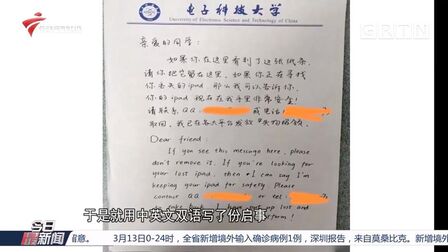 电子科技大学
University of Electronic Science and Technology of China
亲爱的同学:
如果你在这里看到了这张纸条,
请你把它留在这里。如果你正在寻找
你丢失的ipad 那么我可以告诉你,
你的ipad现在在我手里非常安全!
请联系QQ: 或电话:
取回。我已在各大平台发放了失物招领。
Dear friend:
If you see this message here, please
don't remove it. If you're looking for
your lost ipad, then I can say I'm
keeping your ipad for safety. Please
QQ: or tel:
lost and
于是就用中英文双语写了份启事
今日
最新闻
情。 3月13日0-24时,全省新增境外输入确诊病例1例,深圳报告,来自莫桑比克。新增境